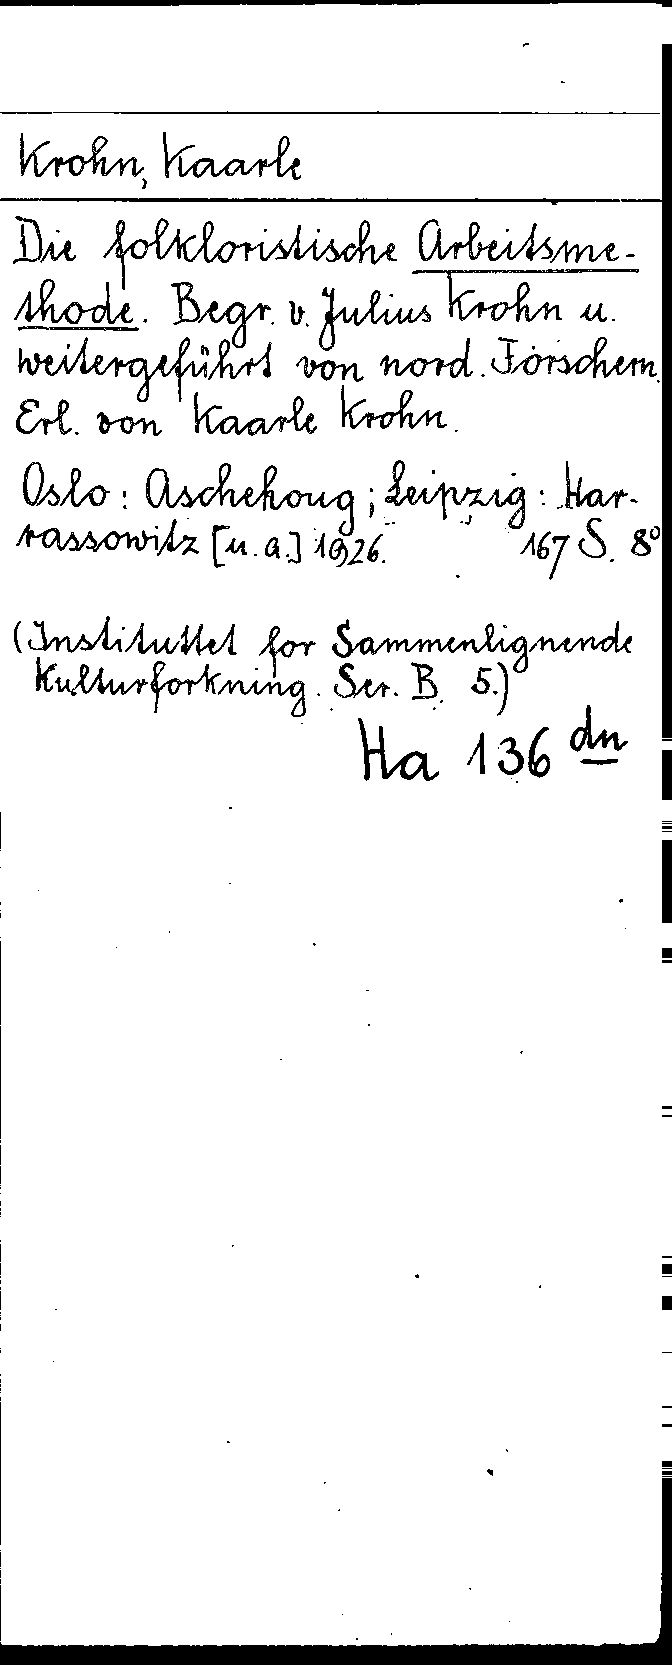 Krohn, Kaarle
Die folkloristische Arbeitsme-
thode. Begr. v. Julius Krohn u.
weitergeführt von nord. Forschern.
Erl. von Kaarle Krohn.
Oslo: Aschehoug; Leipzig: Har-
rassowitz [u.a.] 1926. 167 S. 8°
(Instituttet for Sammenlignende
Kulturforkning. Ser. B. 5.)
Ha 136 dn